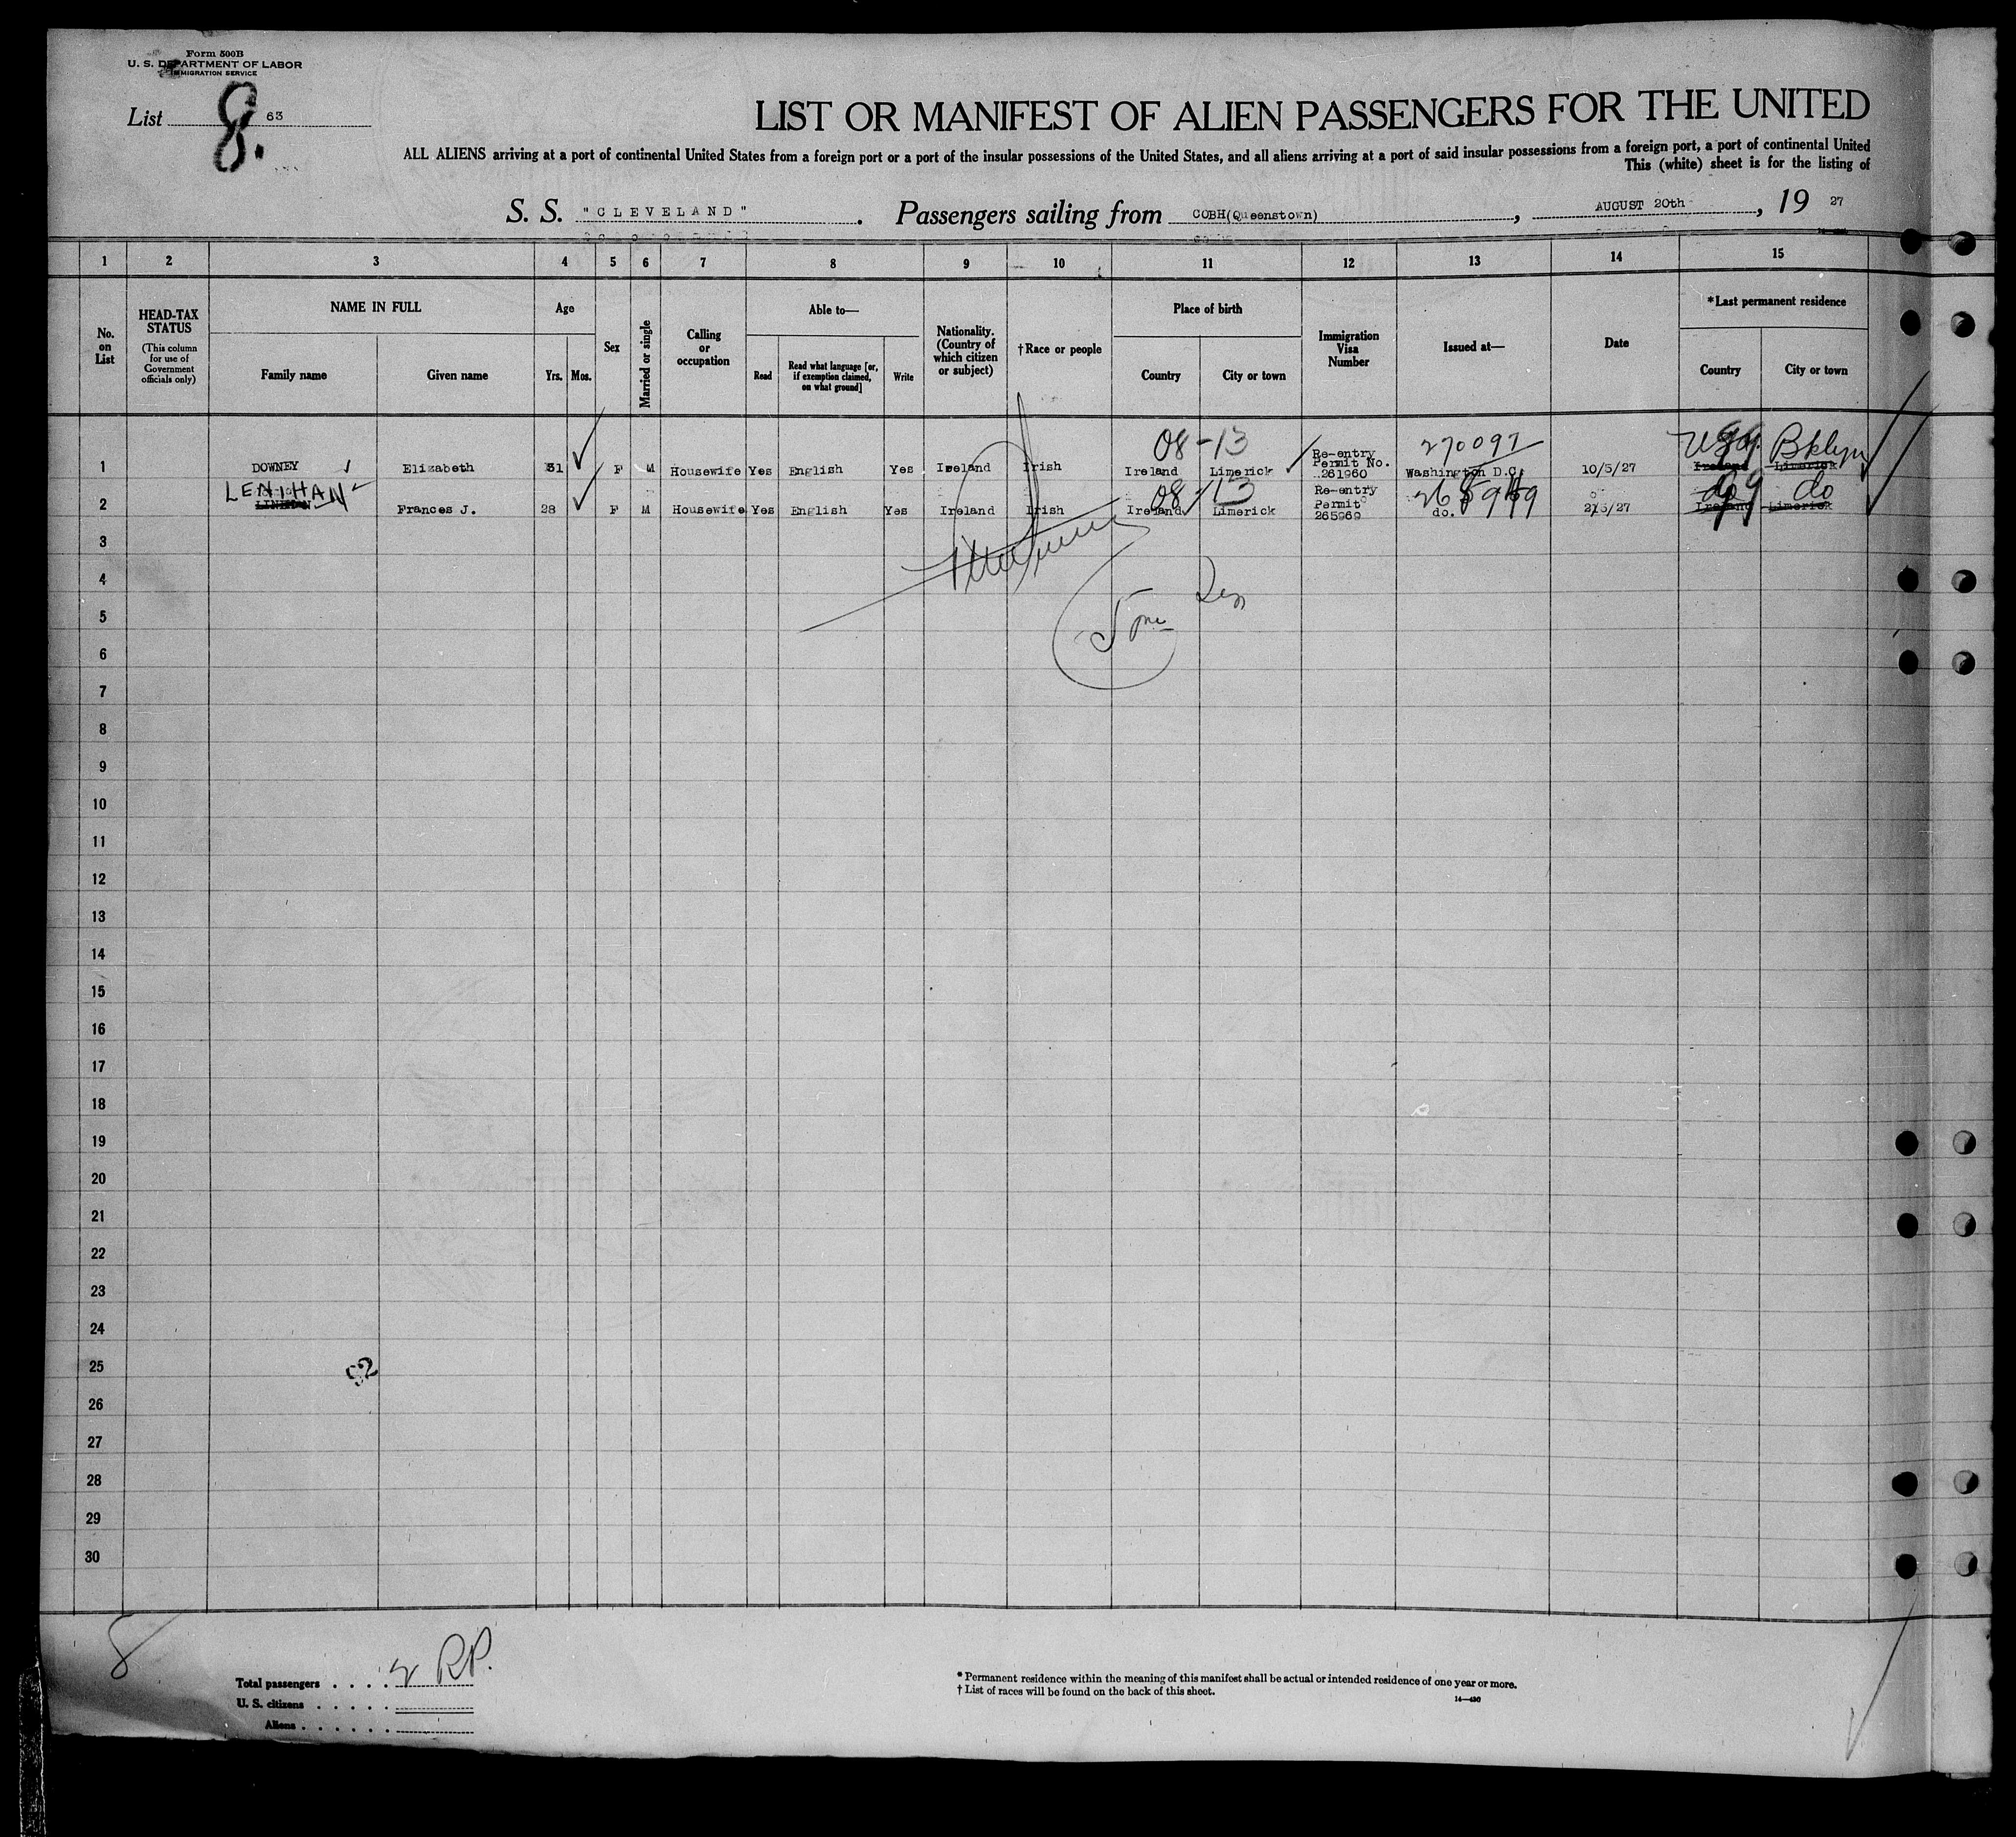 Form 500B
U. S. DEPARTMENT OF LABOR
IMMIGRATION SERVICE
List 8. 63
LIST OR MANIFEST OF ALIEN PASSENGERS FOR THE UNITED
ALL ALIENS arriving at a port of continental United States from a foreign port or a port of the insular possessions of the United States, and all aliens arriving at a port of said insular possessions from a foreign port, a port of continental United
This (white) sheet is for the listing of
S. S. "CLEVELAND". Passengers sailing from COBH(Queenstown), AUGUST 20th, 19 27
1 2 3 4 5 6 7 8 9 10 11 12 13 14 15
No. on List
HEAD-TAX STATUS
(This column for use of Government officials only)
NAME IN FULL
Family name Given name
Age
Yrs. Mos.
Sex
Married or single
Calling or occupation
Able to—
Read Read what language [or, if exemption claimed, on what ground] Write
Nationality. (Country of which citizen or subject)
†Race or people
Place of birth
Country City or town
Immigration Visa Number
Issued at—
Date
*Last permanent residence
Country City or town
08-13 270097 Bklyn
1 DOWNEY Elizabeth 31 F M Housewife Yes English Yes Ireland Irish Ireland Limerick Re-entry Permit No. 261960 Washington D.C. 10/5/27 Ireland Limerick
LENIHAN 08-13 do do
2 Frances J. 28 F M Housewife Yes English Yes Ireland Irish Ireland Limerick Re-entry Permit 265969 do. 2/5/27 Ireland Limerick
3
4
5
6
7
8
9
10
11
12
13
14
15
16
17
18
19
20
21
22
23
24
25
26
27
28
29
30
8
Total passengers . . . . 2 RP.
U. S. citizens . . . . .
Aliens . . . . . .
* Permanent residence within the meaning of this manifest shall be actual or intended residence of one year or more.
† List of races will be found on the back of this sheet.
14—430